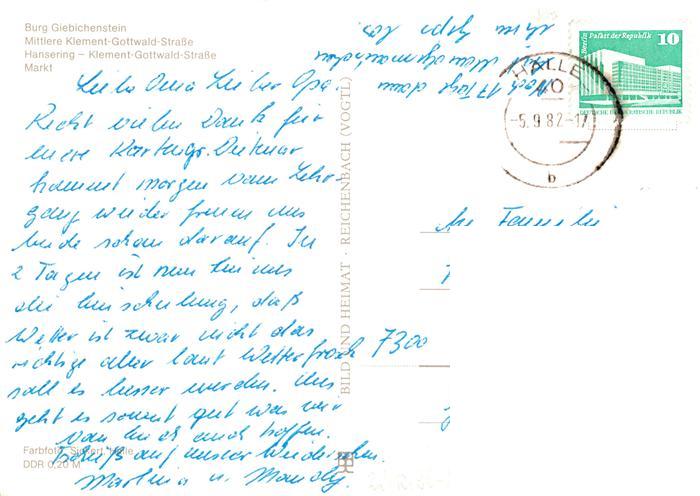 Burg Giebichenstein
Mittlere Klement-Gottwald-Straße
Hansering – Klement-Gottwald-Straße
Markt
Liebe Oma Lieber Opa.
Recht vielen Dank für
eure Kartengr. Dietmar
kommt morgen vom Lehr-
gang wieder freuen uns
beide schon darauf. In
2 Tagen ist nun bei uns
die Einschulung, daß
Wetter ist zwar nicht das
richtige aber laut Wetterfrosch
soll es besser werden. Uns
geht es soweit gut was wir
von euch auch hoffen.
auf unser Wiedersehen.
Martina u. Mandy.
Farbfoto: Halle
DDR 0,20 M
BILD UND HEIMAT · REICHENBACH (VOGTL)
Noch 17 Tage dann
los
Berlin, Palast der Republik 10
DEUTSCHE DEMOKRATISCHE REPUBLIK
HALLE
40
-5.9.82-17
b
An Familie
7300